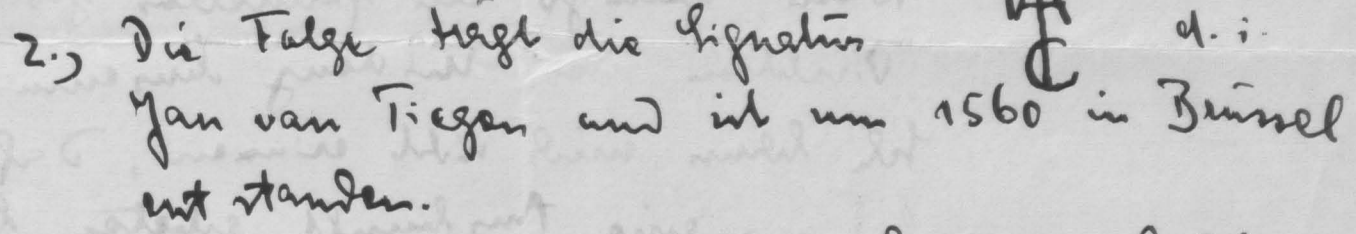 2.) Die Folge trägt die Signatur d. i.
Jan van Tiegen und ist um 1560 in Brüssel
entstanden.